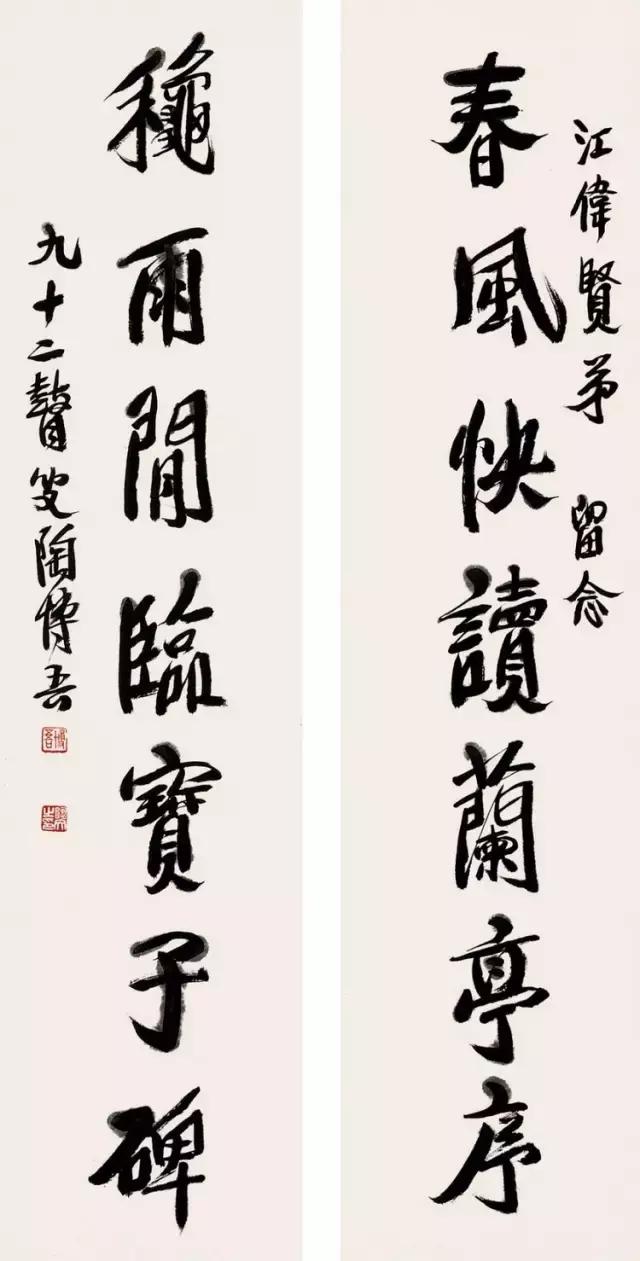 江偉賢弟 留念
春風快讀蘭亭序
龝雨閒臨寶子碑
九十二瞽叟陶博吾